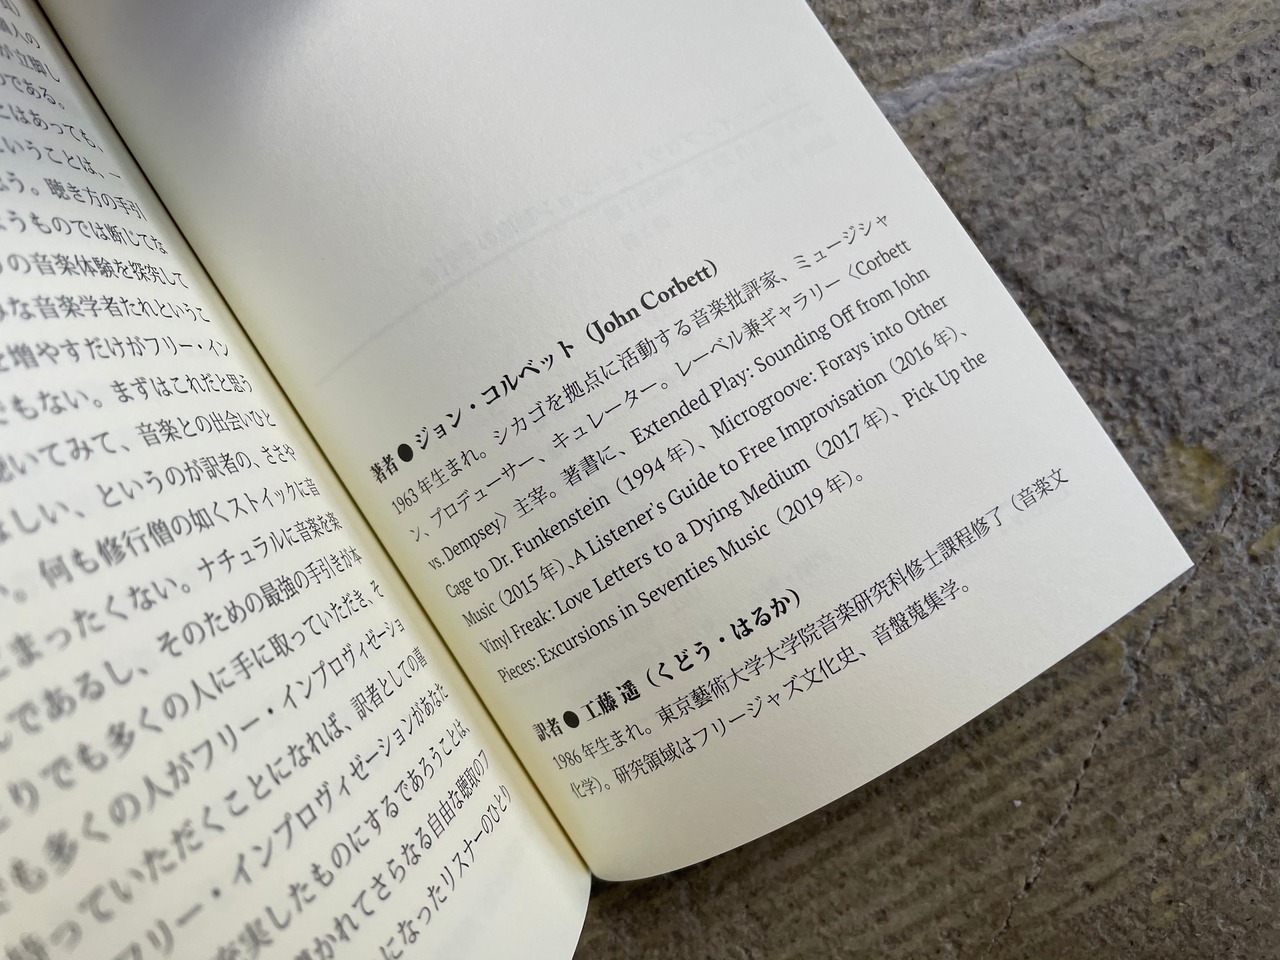 人の
が立脚し
のである。
とはあっても、
いうことは、一
う。聴き方の手引
うものでは断じてな
の音楽体験を探究して
な音楽学者たれというこ
を増やすだけがフリー・イン
でもない。まずはこれだと思う
聴いてみて、音楽との出会いひと
ほしい、というのが訳者の、ささや
。何も修行僧の如くストイックに音
まったくない。ナチュラルに音楽を楽
であるし、そのための最強の手引きが本
りでも多くの人に手に取っていただき、そ
でも多くの人がフリー・インプロヴィゼーショ
持っていただくことになれば、訳者としての喜
フリー・インプロヴィゼーションがあなた
充実したものにするであろうことは、
かれてさらなる自由な聴取のフ
になったリスナーのひとり
著者●ジョン・コルベット（John Corbett）
1963年生まれ。シカゴを拠点に活動する音楽批評家、ミュージシャ
ン、プロデューサー、キュレーター。レーベル兼ギャラリー〈Corbett
vs. Dempsey〉主宰。著書に、Extended Play: Sounding Off from John
Cage to Dr. Funkenstein（1994年）、Microgroove: Forays into Other
Music（2015年）、A Listener's Guide to Free Improvisation（2016年）、
Vinyl Freak: Love Letters to a Dying Medium（2017年）、Pick Up the
Pieces: Excursions in Seventies Music（2019年）。
訳者●工藤 遥（くどう・はるか）
1986年生まれ。東京藝術大学大学院音楽研究科修士課程修了（音楽文
化学）。研究領域はフリージャズ文化史、音盤蒐集学。